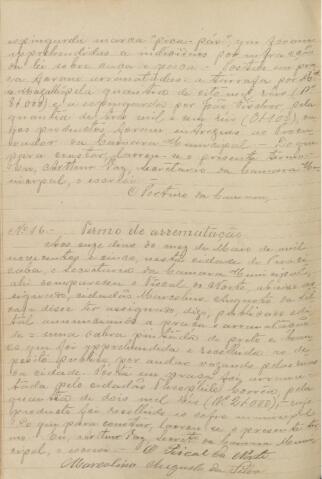 espingarda marca "pica-páu" que foram
apprehendidas a individuos por infracção
da lei sobre caça e pesca. Postas em pra
ça foram arrematadas: a tarrafa por
pela quantia de oito mil réis
e a espingarda por João
quantia de seis mil e um réis, cu
jos productos foram entregues ao Procu
rador da Camara Municipal. Do que
para constar, lavrou-se o presente termo.
Eu, Arthur Vaz, secretario da Camara Mu
nicipal, o escrevi.
O Porteiro da Camara
Nº 16 - Termo de arrematação.
Aos onze dias do mez de Maio de mil
novecentos e cinco, nesta cidade de Piraci
caba, e Secretaria da Camara Municipal,
ahi compareceu o Fiscal do Norte, abaixo as
signado, cidadão Marcolino Augusto da Sil
va disse ter assignado, digo, publicado edi
tal annunciando a praça e arrematação
de uma cabra pintada de preto e bran
co que foi apprehendida e recolhida ao de
posito publico por andar vagando pelas ruas
da cidade. Posta em praça foi arrema
tada pelo cidadão Theophilo Corrêa pela
quantia de dois mil réis (Rs. 2$000), cujo
producto foi recolhido ao cofre municipal
Do que para constar, lavrou-se o presente ter
mo. Eu, Arthur Vaz, secret. da Camara Muni
cipal, o escrevi. O Fiscal do Norte
Marcolino Augusto da Silva